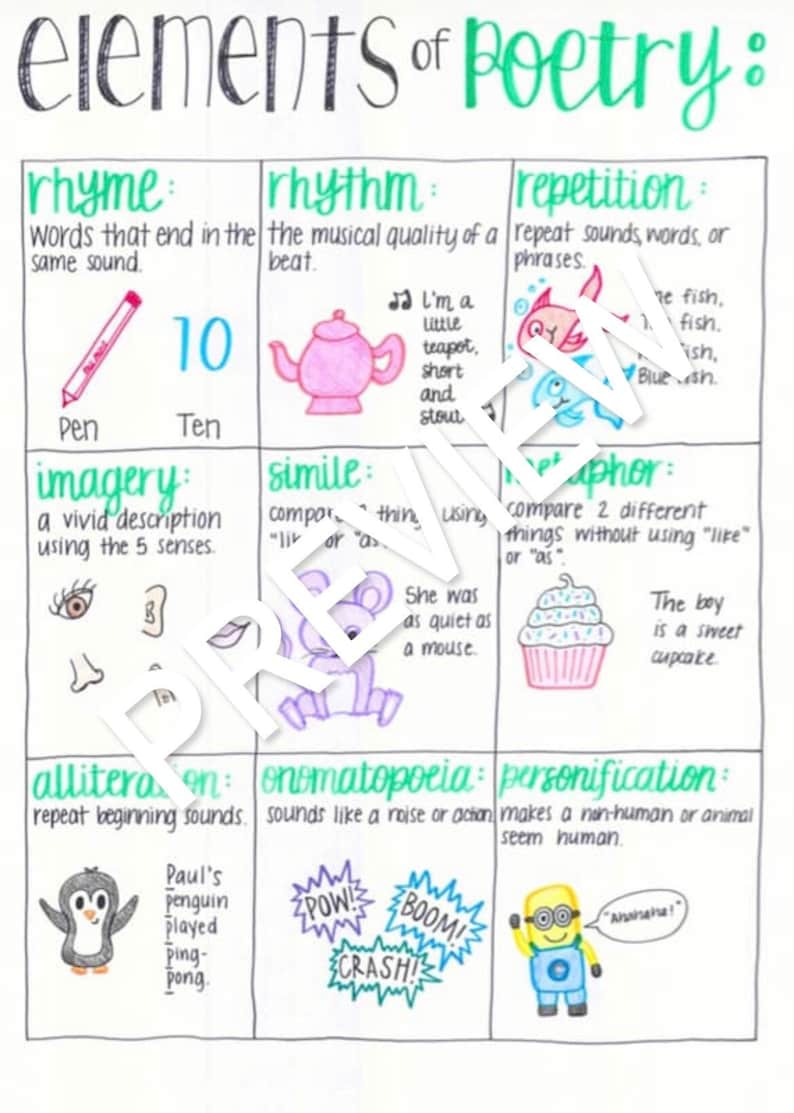 elements of poetry:
rhyme:
words that end in the
same sound.
10
Pen
Ten
rhythm:
the musical quality of a
beat.
I'm a
little
teapot,
short
and
stout
repetition:
repeat sounds, words, or
phrases.
fish,
fish.
Blue fish.
imagery:
a vivid description
using the 5 senses.
simile:
things using
or "as
She was
as quiet as
a mouse.
metaphor:
compare 2 different
things without using "like"
or "as".
The boy
is a sweet
cupcake.
alliteration:
repeat beginning sounds.
Paul's
penguin
played
ping-
pong.
onomatopoeia:
sounds like a noise or action
POW!
BOOM!
CRASH!
personification:
makes a non-human or animal
seem human.
"Ahahaha!"
PREVIEW